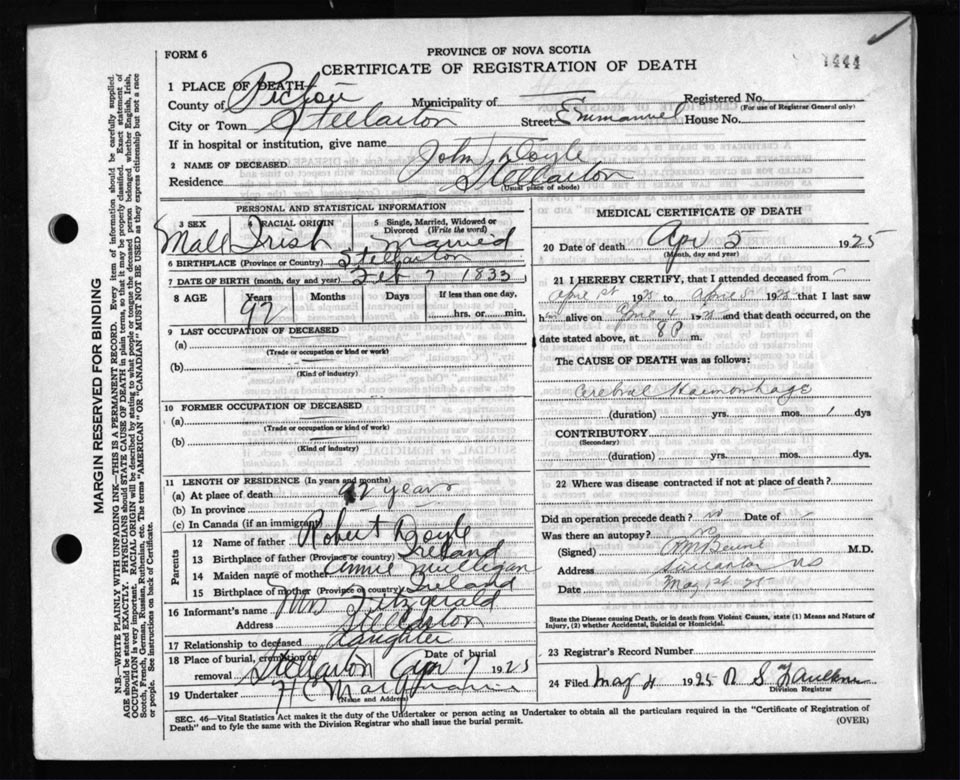 FORM 6
PROVINCE OF NOVA SCOTIA
CERTIFICATE OF REGISTRATION OF DEATH
1444
1 PLACE OF DEATH
County of Pictou Municipality of — Registered No.
(For use of Registrar General only)
City or Town Stellarton Street Emmanuel House No.
If in hospital or institution, give name
2 NAME OF DECEASED John Doyle
Residence Stellarton
(Usual place of abode)
PERSONAL AND STATISTICAL INFORMATION
3 SEX RACIAL ORIGIN 5 Single, Married, Widowed or Divorced (Write the word)
Male Irish Married
6 BIRTHPLACE (Province or Country) Stellarton
7 DATE OF BIRTH (month, day and year) Feb 7 1833
8 AGE Years Months Days If less than one day,
92 hrs. or min.
9 LAST OCCUPATION OF DECEASED
(a) —
(Trade or occupation or kind or work)
(b) —
(Kind of industry)
10 FORMER OCCUPATION OF DECEASED
(a) —
(Trade or occupation or kind of work)
(b) —
(Kind of industry)
11 LENGTH OF RESIDENCE (In years and months)
(a) At place of death 92 years
(b) In province
(c) In Canada (if an immigrant)
Parents
12 Name of father Robert Doyle
13 Birthplace of father (Province or country) Ireland
14 Maiden name of mother Annie Mulligan
15 Birthplace of mother (Province or country) Ireland
16 Informant's name Mrs Fitzgerald
Address Stellarton
17 Relationship to deceased daughter
18 Place of burial, cremation or removal Stellarton Date of burial Apr 7 1925
19 Undertaker H C
(Name and Address)
MEDICAL CERTIFICATE OF DEATH
20 Date of death Apr 5 1925
(Month, day and year)
21 I HEREBY CERTIFY, that I attended deceased from
April 1st 1925 to April 5 1925 that I last saw
him alive on April 4 1925 and that death occurred, on
date stated above, at 8 P m.
The CAUSE OF DEATH was as follows:
Cerebral Haemorrhage
(duration) yrs. mos. 1 dys
CONTRIBUTORY
(Secondary)
(duration) yrs. mos. dys.
22 Where was disease contracted if not at place of death?
Did an operation precede death? no Date of —
Was there an autopsy? no
(Signed) M.D.
Address Stellarton NS
Date May 1st 25
State the Disease causing Death, or in death from Violent Causes, state (1) Means and Nature of Injury, (2) whether Accidental, Suicidal or Homicidal.
23 Registrar's Record Number
24 Filed May 4 1925 S Faulkner
Division Registrar
SEC. 46—Vital Statistics Act makes it the duty of the Undertaker or person acting as Undertaker to obtain all the particulars required in the "Certificate of Registration of
Death" and to fyle the same with the Division Registrar who shall issue the burial permit.
(OVER)
MARGIN RESERVED FOR BINDING
N.B.—WRITE PLAINLY WITH UNFADING INK—THIS IS A PERMANENT RECORD. Every item of information should be carefully supplied.
AGE should be stated EXACTLY. PHYSICIANS should STATE CAUSE OF DEATH in plain terms, so that it may be properly classified. Exact statement of
OCCUPATION is very important. RACIAL ORIGIN will be described by stating to what people or tongue the deceased person belonged, whether English, Irish,
Scotch, French, German, Russian, Ruthenian, etc. The terms "AMERICAN" OR "CANADIAN" MUST NOT BE USED as they express citizenship but not a race
or people. See Instructions on back of Certificate.